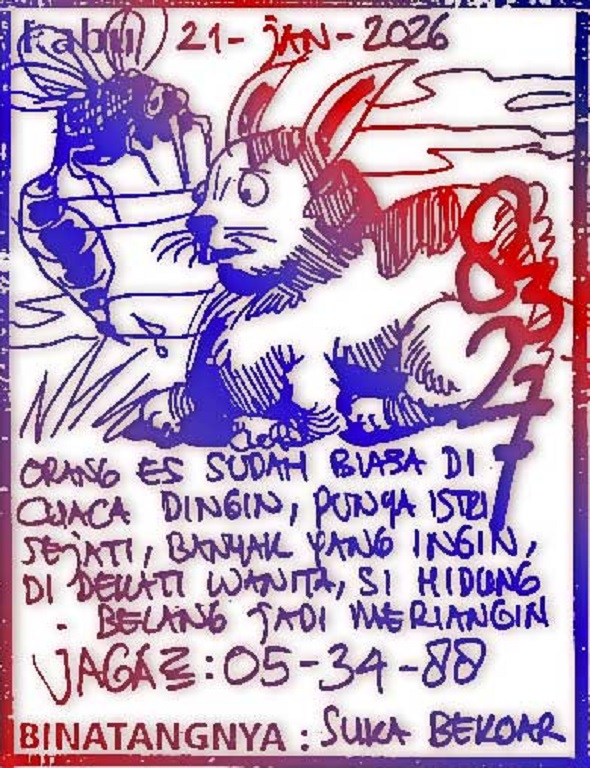 Rabu 21-JAN-2026
83
27
ORANG ES SUDAH BIASA DI
CUACA DINGIN, PUNYA ISTRI
SEJATI, BANYAK YANG INGIN,
DI DEKATI WANITA, SI HIDUNG
- BELANG JADI MERIANGIN
JAGA2:05-34-88
BINATANGNYA : SUKA BEKOAR